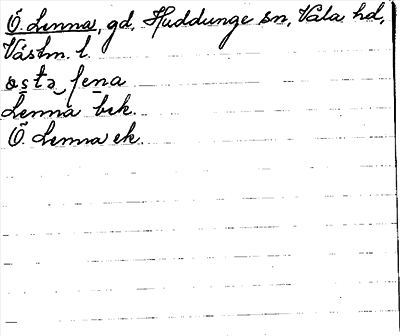 Ö. Lenna, gd, Huddunge sn, Vala hd,
Västm. l.
Lenna bek.
Ö. Lenna ek.